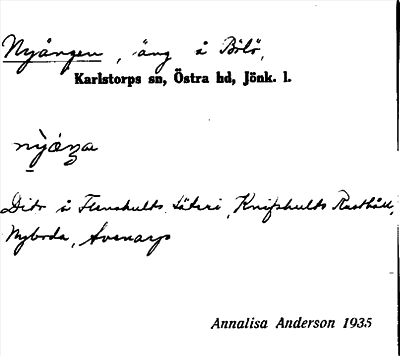 Nyången, äng å Bölö,
Karlstorps sn, Östra hd, Jönk. l.
Dito å Flenshults säteri, Knifshults Rusthåll,
Nyboda,
Annalisa Anderson 1935